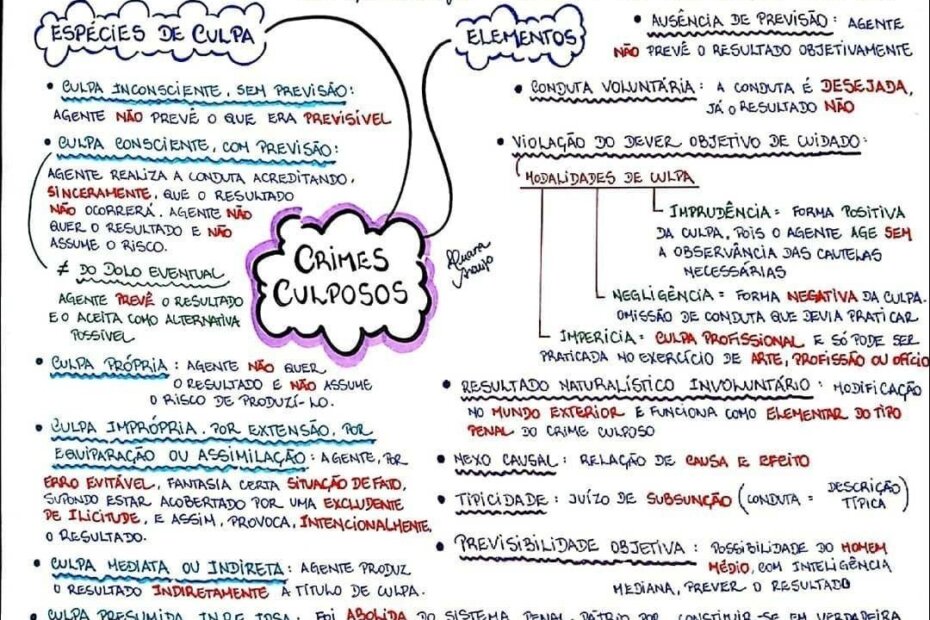 ESPÉCIES DE CULPA
• CULPA INCONSCIENTE, SEM PREVISÃO:
AGENTE NÃO PREVÊ O QUE ERA PREVISÍVEL
• CULPA CONSCIENTE, COM PREVISÃO:
AGENTE REALIZA A CONDUTA ACREDITANDO,
SINCERAMENTE, QUE O RESULTADO
NÃO OCORRERÁ. AGENTE NÃO
QUER O RESULTADO E NÃO
ASSUME O RISCO.
≠ DO DOLO EVENTUAL
AGENTE PREVÊ O RESULTADO
E O ACEITA COMO ALTERNATIVA
POSSÍVEL
• CULPA PRÓPRIA: AGENTE NÃO QUER
O RESULTADO E NÃO ASSUME
O RISCO DE PRODUZÍ-LO.
• CULPA IMPRÓPRIA, POR EXTENSÃO, POR
EQUIPARAÇÃO OU ASSIMILAÇÃO: AGENTE, POR
ERRO EVITÁVEL, FANTASIA CERTA SITUAÇÃO DE FATO,
SUPONDO ESTAR ACOBERTADO POR UMA EXCLUDENTE
DE ILICITUDE, E ASSIM, PROVOCA, INTENCIONALMENTE,
O RESULTADO.
• CULPA MEDIATA OU INDIRETA: AGENTE PRODUZ
O RESULTADO INDIRETAMENTE A TÍTULO DE CULPA.
CRIMES
CULPOSOS
Araujo
ELEMENTOS
• AUSÊNCIA DE PREVISÃO: AGENTE
NÃO PREVÊ O RESULTADO OBJETIVAMENTE
• CONDUTA VOLUNTÁRIA: A CONDUTA É DESEJADA,
JÁ O RESULTADO NÃO
• VIOLAÇÃO DO DEVER OBJETIVO DE CUIDADO:
MODALIDADES DE CULPA
IMPRUDÊNCIA = FORMA POSITIVA
DA CULPA, POIS O AGENTE AGE SEM
A OBSERVÂNCIA DAS CAUTELAS
NECESSÁRIAS
NEGLIGÊNCIA = FORMA NEGATIVA DA CULPA.
OMISSÃO DE CONDUTA QUE DEVIA PRATICAR
IMPERÍCIA = CULPA PROFISSIONAL E SÓ PODE SER
PRATICADA NO EXERCÍCIO DE ARTE, PROFISSÃO OU OFÍCIO
• RESULTADO NATURALÍSTICO INVOLUNTÁRIO: MODIFICAÇÃO
NO MUNDO EXTERIOR E FUNCIONA COMO ELEMENTAR DO TIPO
PENAL DO CRIME CULPOSO
• NEXO CAUSAL: RELAÇÃO DE CAUSA E EFEITO
• TIPICIDADE: JUÍZO DE SUBSUNÇÃO (CONDUTA = DESCRIÇÃO
TÍPICA)
• PREVISIBILIDADE OBJETIVA: POSSIBILIDADE DO HOMEM
MÉDIO, COM INTELIGÊNCIA
MEDIANA, PREVER O RESULTADO
• CULPA PRESUMIDA, IN RE IPSA: FOI ABOLIDA DO SISTEMA PENAL PÁTRIO POR CONSTITUIR-SE EM VERDADEIRA